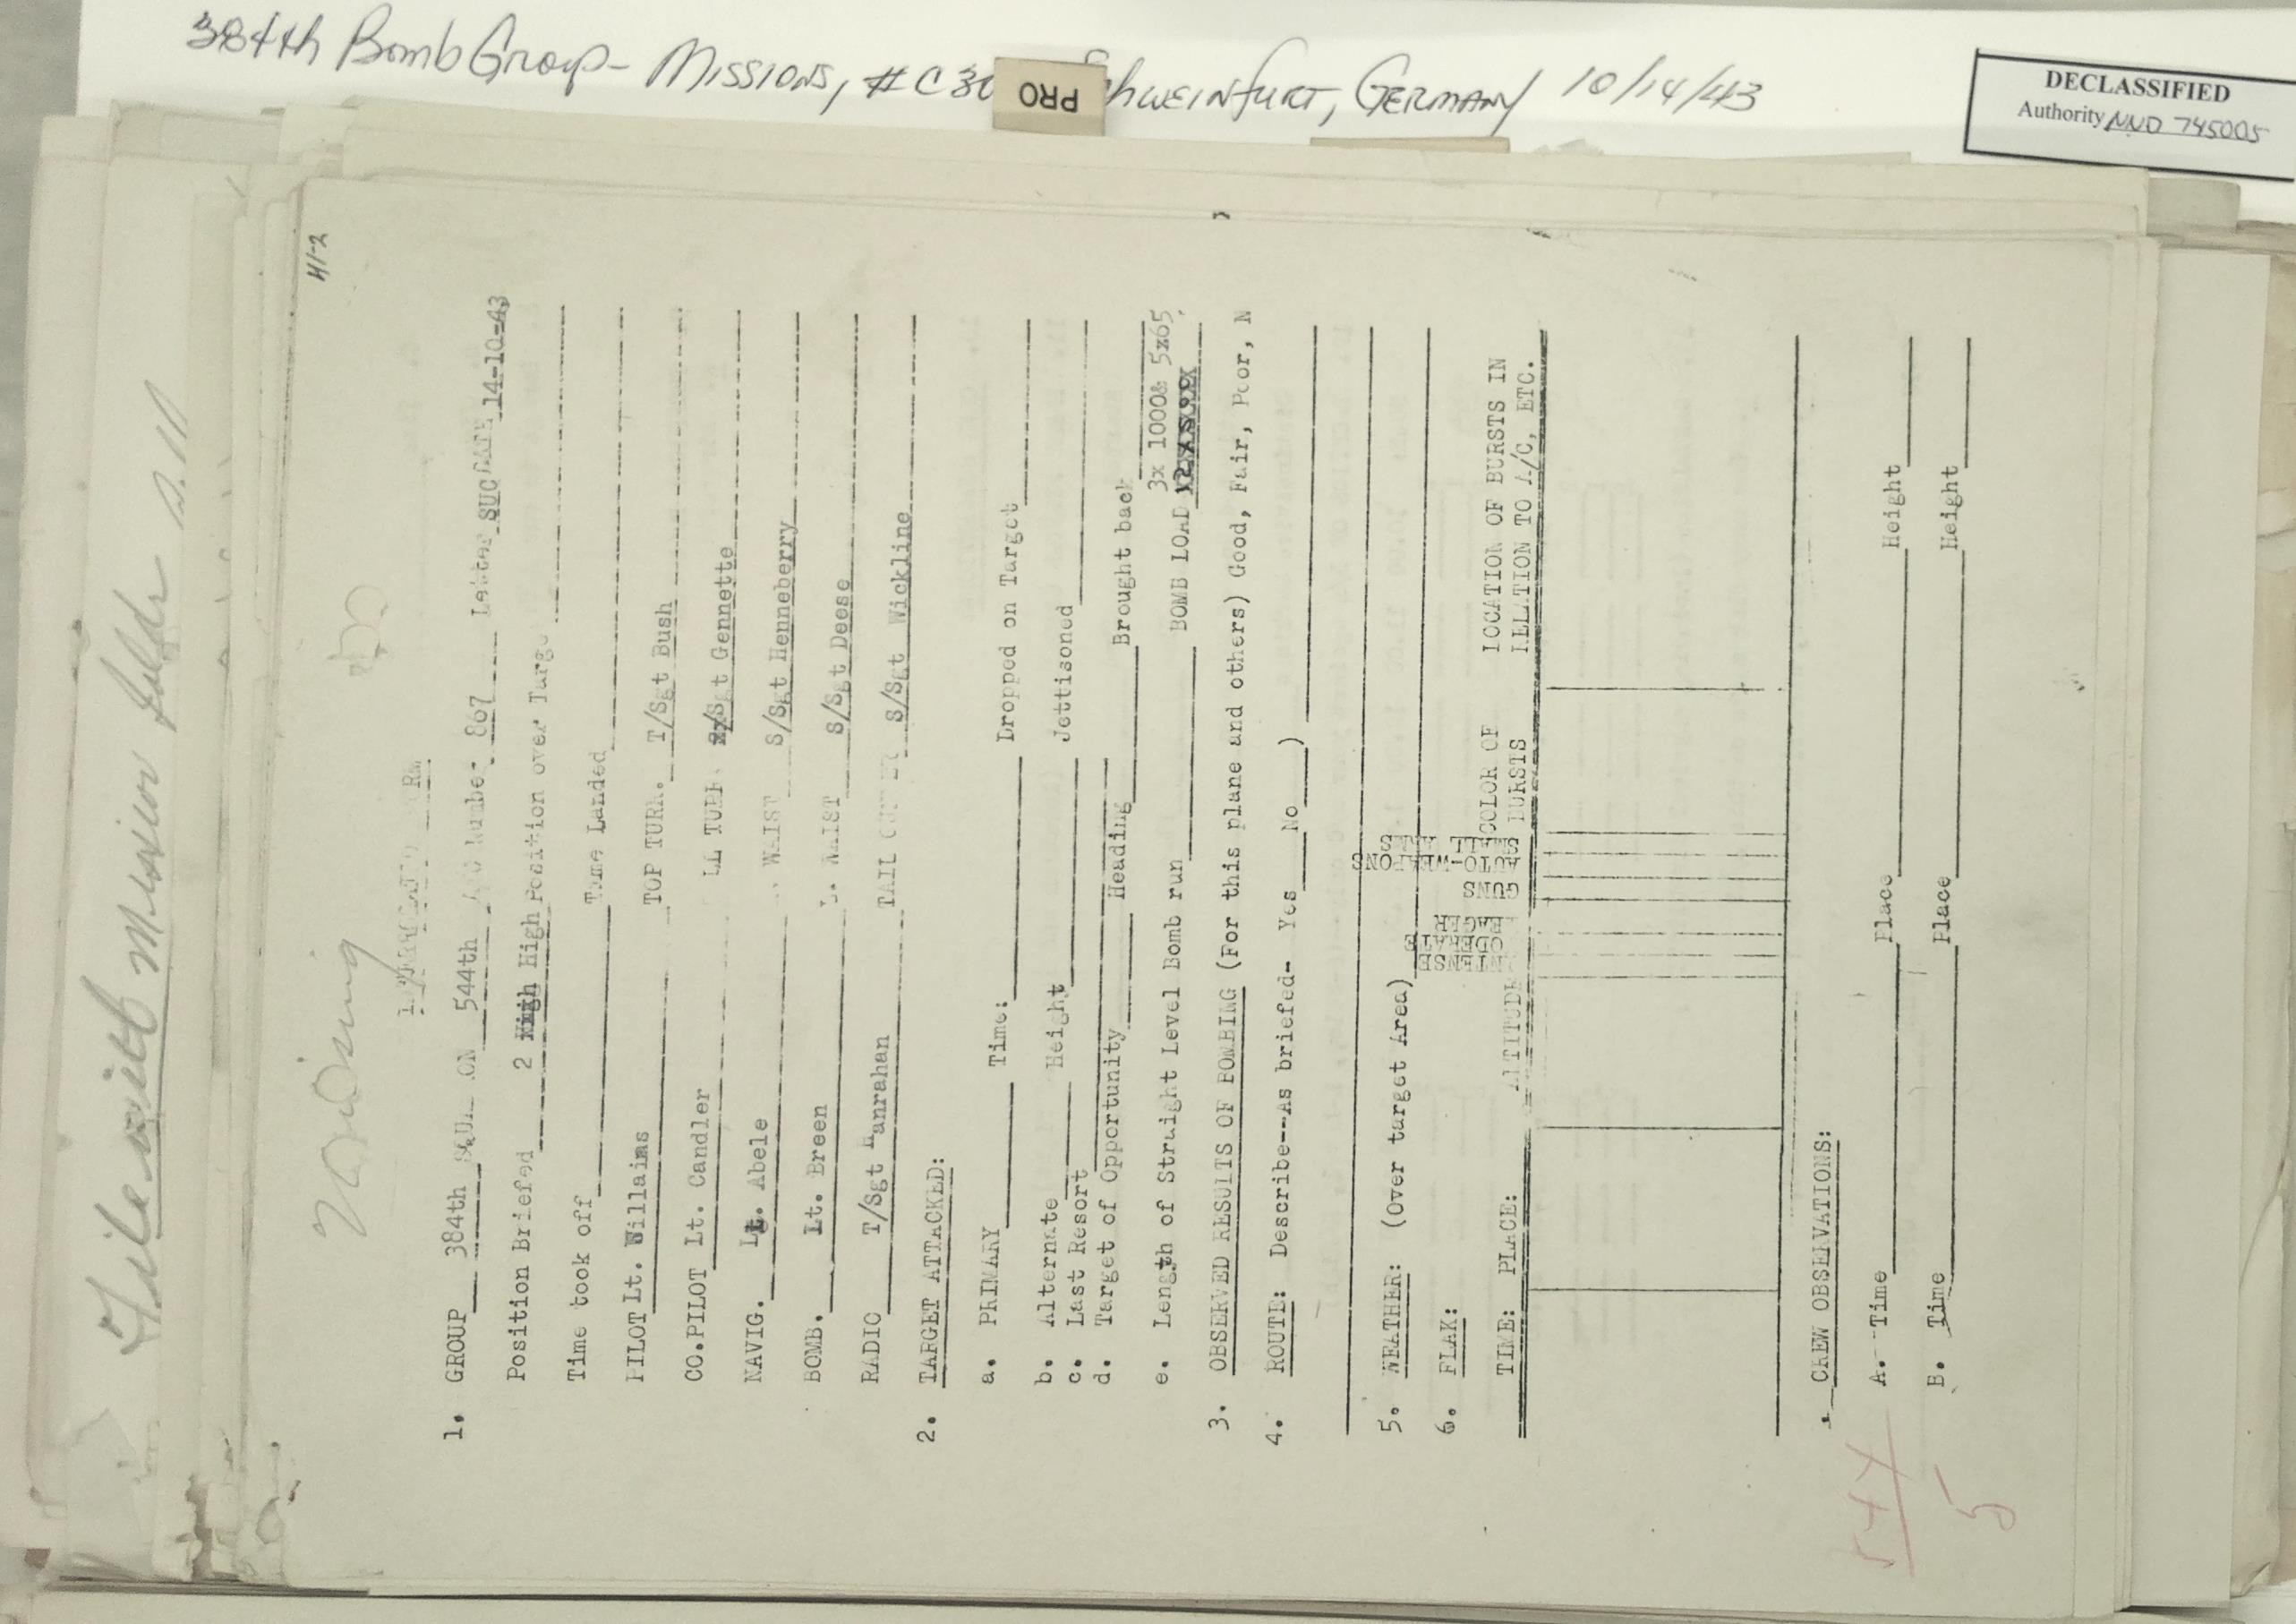 384th Bomb Group - Missions, #C30 chweinfurt, Germany 10/14/43
PRO
DECLASSIFIED
Authority NND 745005
File with mission folder
41-2
Missing
1. GROUP 384th 544th Number 867 Letter SU DATE 14-10-43
Position Briefed 2 High High Position over Targe
Time took off Time Landed
PILOT Lt. Willaims TOP TURR. T/Sgt Bush
CO.PILOT Lt. Candler LL TURR. S/Sgt Gennette
NAVIG. Lt. Abele WAIST S/Sgt Henneberry
BOMB. Lt. Breen L. WAIST S/Sgt Deese
RADIO T/Sgt Hanrahan TAIL S/Sgt Wickline
2. TARGET ATTACKED:
a. PRIMARY Time: Dropped on Target
b. Alternate Height Jettisoned
c. Last Resort
d. Target of Opportunity Heading Brought back
3x 1000& 5x65
e. Length of Straight Level Bomb run BOMB LOAD
3. OBSERVED RESULTS OF BOMBING (For this plane and others) Good, Fair, Poor, N
4. ROUTE: Describe--As briefed- Yes No )
5. WEATHER: (Over target Area)
6. FLAK:
INTENSE
ODERATE
EAGER
GUNS
AUTO-WEAPONS
SMALL ARMS
COLOR OF LOCATION OF BURSTS IN
TIME: PLACE: ALTITUDE BURSTS RELATION TO A/C, ETC.
CREW OBSERVATIONS:
A. Time Place Height
B. Time Place Height
544
5